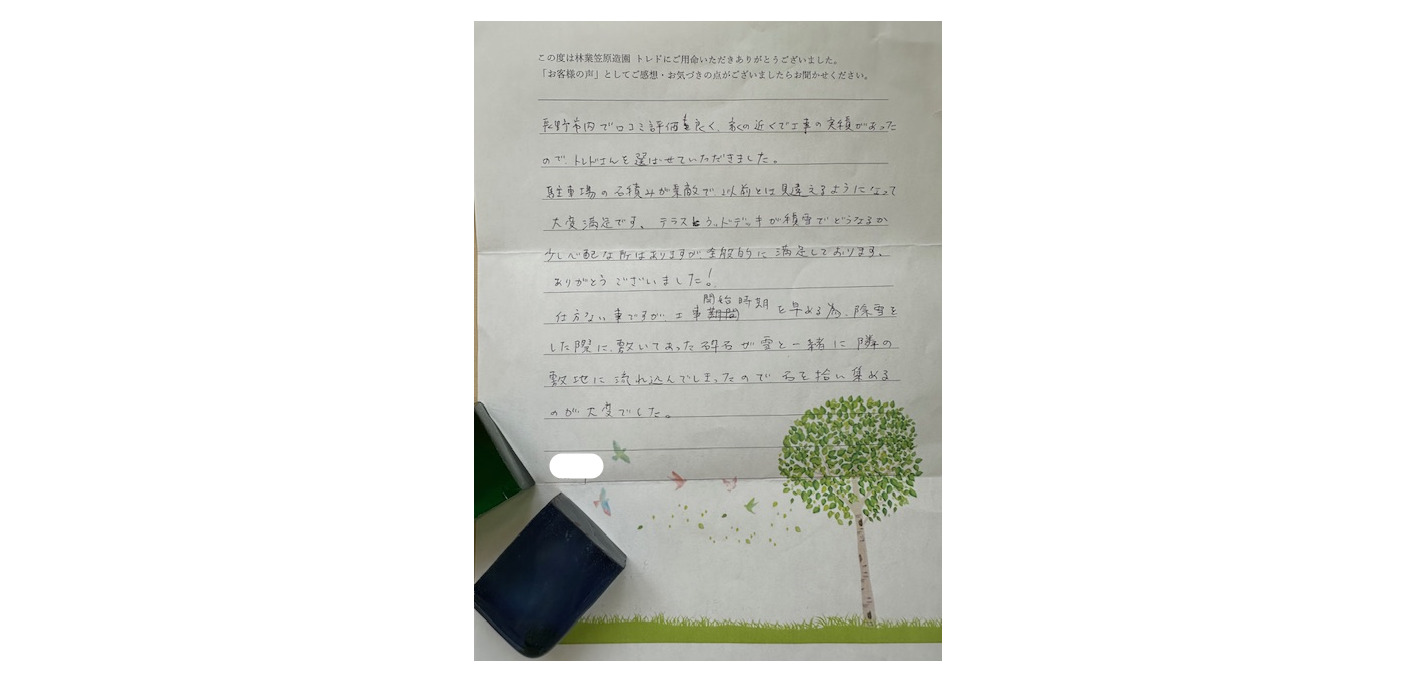 この度は林業笠原造園 トレドにご用命いただきありがとうございました。
「お客様の声」としてご感想・お気づきの点がございましたらお聞かせください。
長野市内で口コミ評価も良く、家の近くで工事の実績があった
ので、トレドさんを選ばせていただきました。
駐車場の石積みが素敵で以前とは見違えるようになって
大変満足です。テラスとウッドデッキが積雪でどうなるか
少し心配な所はありますが、全般的に満足しております。
ありがとうございました!
開始時期
仕方ない事ですが、工事期間を早める為、除雪を
した際に、敷いてあった砕石が雪と一緒に隣の
敷地に流れ込んでしまったので石を拾い集める
のが大変でした。